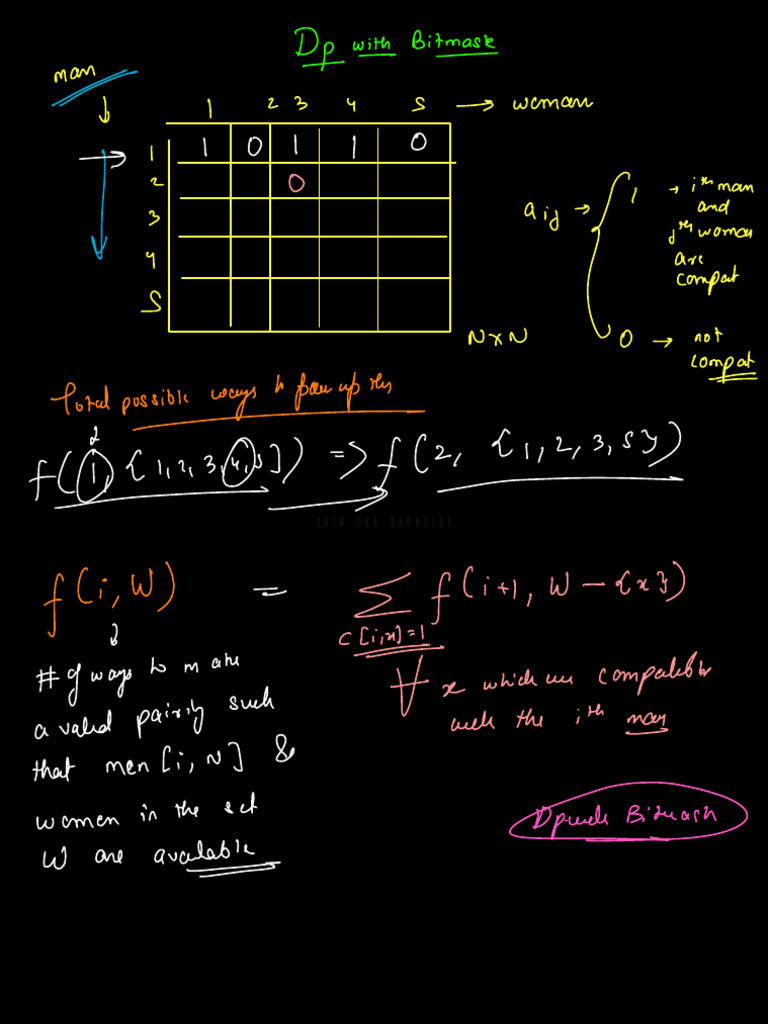 Dp with Bitmask
man
1 2 3 4 5 → woman
1 1 0 1 1 0
2 0
3
4
5
aij → { 1 → ith man
and
jth woman
are
compat
0 → not
compat
N x N
Total possible ways to pair up this
2
f(1, {1,2,3,4,5}) => f(2, {1,2,3,5})
JOIN THE DARKSIDE
f(i, W) = Σ f(i+1, W - {x})
C[i,x]=1
# of ways to make
a valid pairing such
that men [i, N] &
women in the set
W are available
∀ x which are compatible
with the ith man
Dp with Bitmask